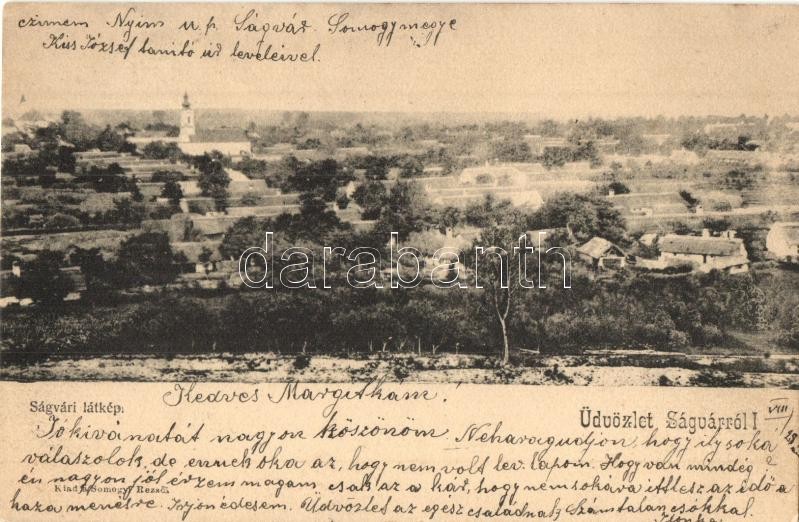 czimem Nyim u.p. Ságvár. Somogymegye
Kiss József tanító úr leveleivel.
darabanth
Kedves Margitkám!
Ságvári látkép.
Üdvözlet Ságvárról!
VIII
Jókivánatát nagyon köszönöm Neharagudjon, hogy ilysoká
válaszolok de ennek oka az, hogy nem volt lev. lapom. Hogy van mindég?
én nagyon jól érzem magam, csak az a kár, hogy nemsokára itt lesz az idő a
Kiadja Somogyi Rezső.
haza menetre. Irjon édesem. Üdvözlet az egész családnak Számtalan csókkal